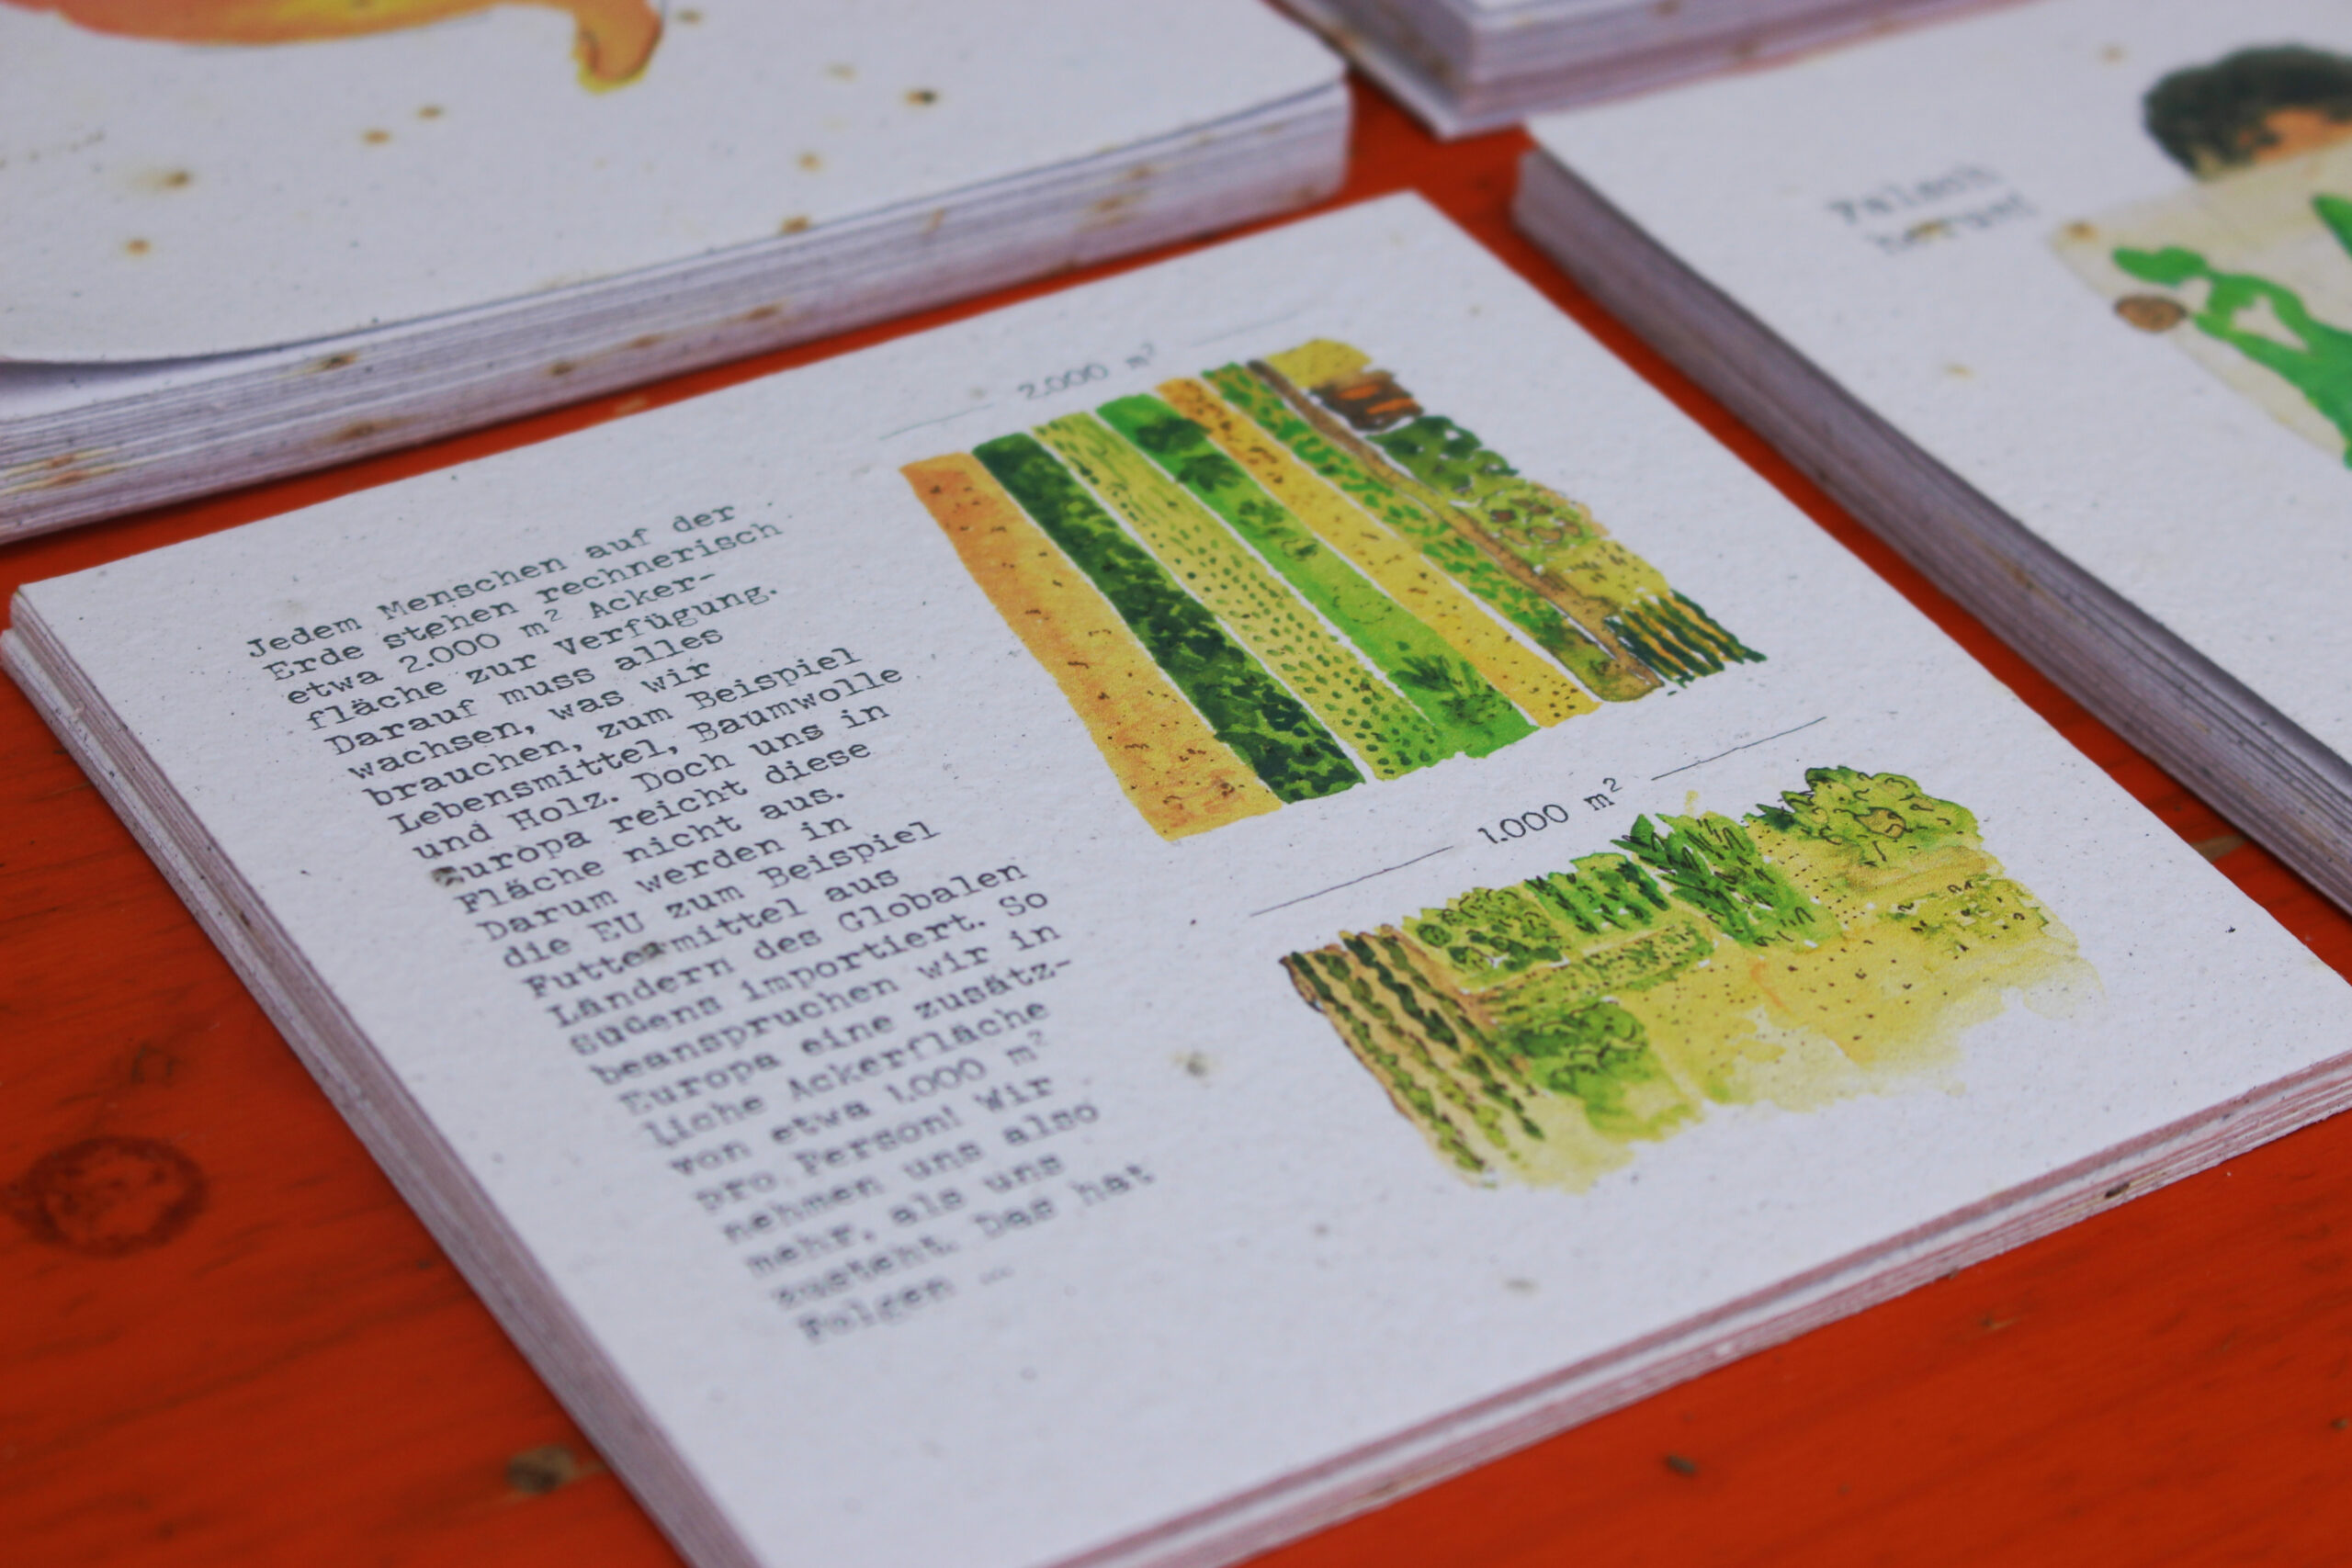 Jedem Menschen auf der
Erde stehen rechnerisch
etwa 2.000 m² Acker-
fläche zur Verfügung.
Darauf muss alles
wachsen, was wir
brauchen, zum Beispiel
Lebensmittel, Baumwolle
und Holz. Doch uns in
Europa reicht diese
Fläche nicht aus.
Darum werden in
die EU zum Beispiel
Futtermittel aus
Ländern des Globalen
Südens importiert. So
beanspruchen wir in
Europa eine zusätz-
liche Ackerfläche
von etwa 1.000 m²
pro Person! Wir
nehmen uns also
mehr, als uns
zusteht. Das hat
Folgen …
2.000 m²
1.000 m²